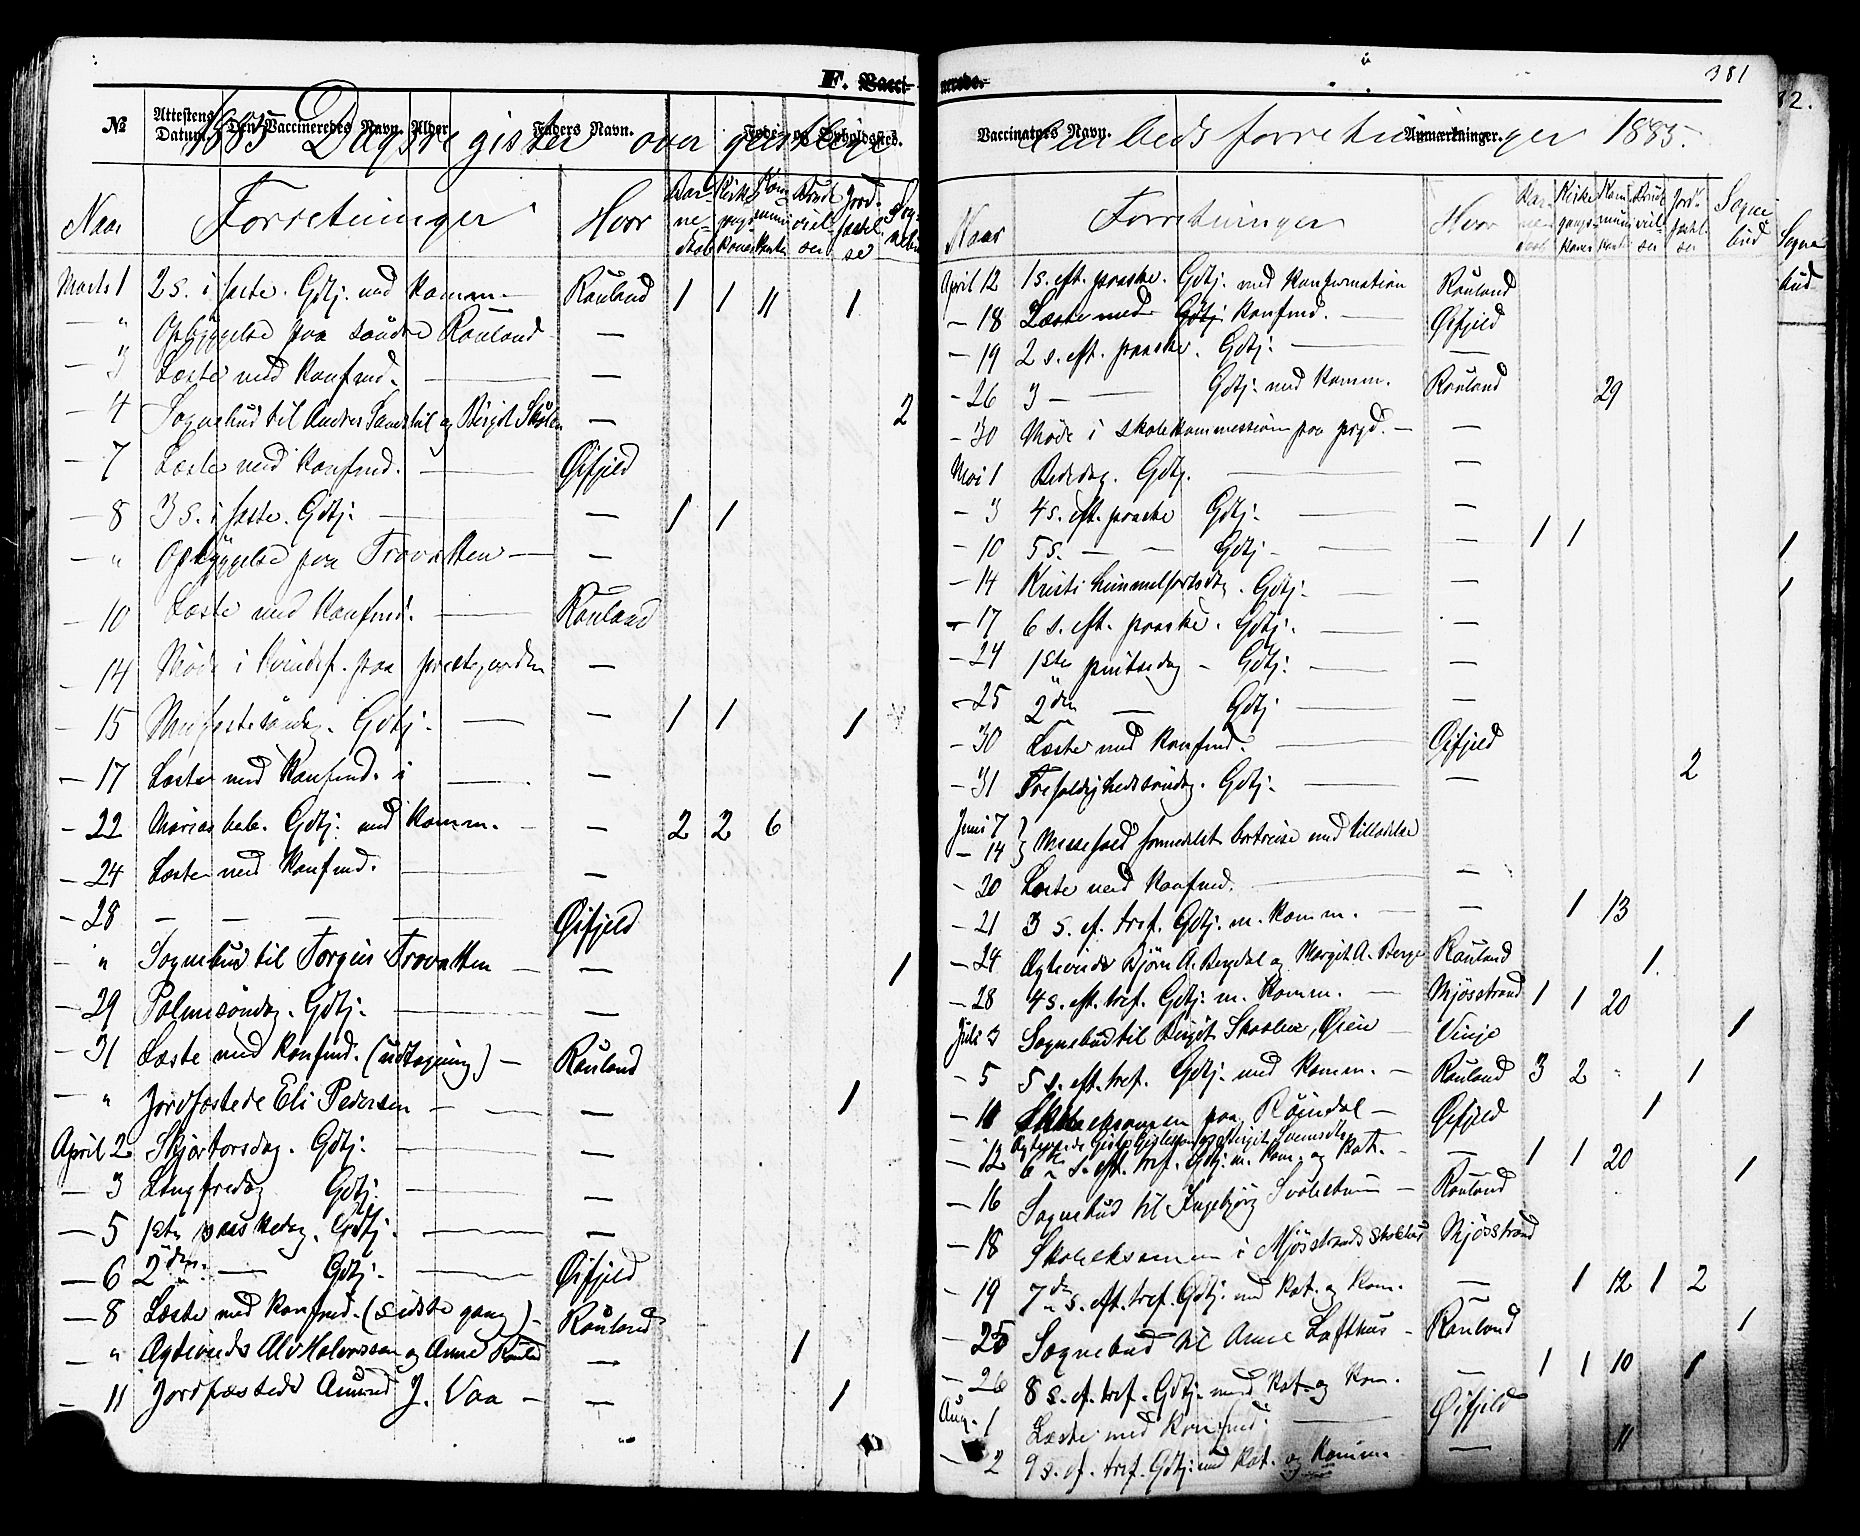 F. Vacci-
№ Attestens Datum. Den Vaccineredes Navn. Alder Faders Navn. Føde- og Opholdssted.
1885 Dagsregister over geistlige
Naar Forretninger Hvor Barnedaab Kirkegangskoner Kommunikanter Brudevielser Jordfæstelse Sognebud
Marts 1 2 s. i faste. Gdtj. med komm. Rauland 1 1 11 1
— " Opbyggelse paa søndre Rauland —
— 3 Læste med konfmd. — —
— 4 Sognebud til Andres Sandstul og Birgit — 2
— 7 Læste med konfmd. — Øifjeld
— 8 3 s. i faste. Gdtj: — — 1 1
— " Opbyggelse paa Trovatten — —
— 10 Læste med konfmd. — Rauland
— 14 Møde i Kvindef. paa præstegaarden —
— 15 Midfastesøndag. Gdtj. — — 1 1 1
— 17 Læste med konfmd. — —
— 22 Marias beb. Gdtj: med komm. — — 2 2 6
— 24 Læste med konfmd. — —
— 28 — — — — Øifjeld
— " Sognebud til Torgim Trovatten — — 1
— 29 Palmesøndag. Gdtj: — —
— 31 Læste med konfmd. (udtagning) — Rauland
— " Jordfæstede Eli Pedersen — — — 1
April 2 Skjærtorsdag. Gdtj: — —
— 3 Langfredag Gdtj: — —
— 5 1ste paaskedag. Gdtj. — —
— 6 2den — Gdtj. — Øifjeld
— 8 Læste med konfmd. (sidste gang) — Rauland
— " Ægteviede Alv Halvorsson og Anne — 1
— 11 Jordfæstede Amund J. Vaa — — 1
381
nerede.
Vaccinators Navn. Anmærkninger.
embedsforretninger 1885.
Naar Forretninger Hvor Barnedaab Kirkegangskoner Kommunikanter Brudevielser Jordfæstelser Sognebud
April 12 1 s. eft. paaske. Gdtj. med konfirmation Rauland
— 18 Læste med Gdtj konfmd. — Øifjeld
— 19 2 s. eft. paaske. Gdtj: — —
— 26 3 — — Gdtj. med komm. Rauland 29
— 30 Møde i skolekommissionen paa prgd. — —
Mai 1 Bededag. Gdtj. — —
— 3 4 s. eft. paaske Gdtj: — —
— 10 5 s. — — Gdtj — — — 1 1
— 14 Kristi himmelfartsdag. Gdtj: — —
— 17 6 s. eft. paaske. Gdtj. — —
— 24 1ste pintsedag — Gdtj: — —
— 25 2den — Gdtj — —
— 30 Læste med konfmd. — Øifjeld
— 31 Trefoldighedssøndag. Gdtj. — — 2
Juni 7
— 14 } Messefald formedelst bortreise med tilladelse
— 20 Læste med konfmd. — —
— 21 3 s. ef. tref. Gdtj. m. komm. — — 1 13
— 24 Ægteviede Bjørn A. Bergdal og Margit A. Berge Rauland 1
— 28 4 s. eft. tref. Gdtj. m. komm. — Mjøsstrand 1 1 20
Juli 3 Sognebud til Birgit Skaalen, Øien — Vinje 1
— 5 5 s. eft. tref. Gdtj. med komm. — Rauland 3 2 1
— 11 Skoleeksamen paa Røindal — Øifjeld 1
Ægteviede Gisle Gislesson og Birgit
— 12 6te s. eft. tref. Gdtj. m. kom. og kat. — — 1 1 20
— 16 Sognebud til Ingebjørg — Rauland 1
— 18 Skoleeksamen i Mjøsstrands skolehus Mjøsstrand
— 19 7de s. eft. tref. Gdtj. med kat. og kom. — 1 12 1 2
— 25 Sognebud til Anne Lofthus — Rauland 1
— 26 8 s. ef. tref. Gdtj. med kat. og kom. — 1 1 10 1
Aug. 1 Læste med konfmd. — Øifjeld
— 2 9 s. ef. tref. Gdtj: med kat. og komm. — 11
82.
Sognebud
1
1